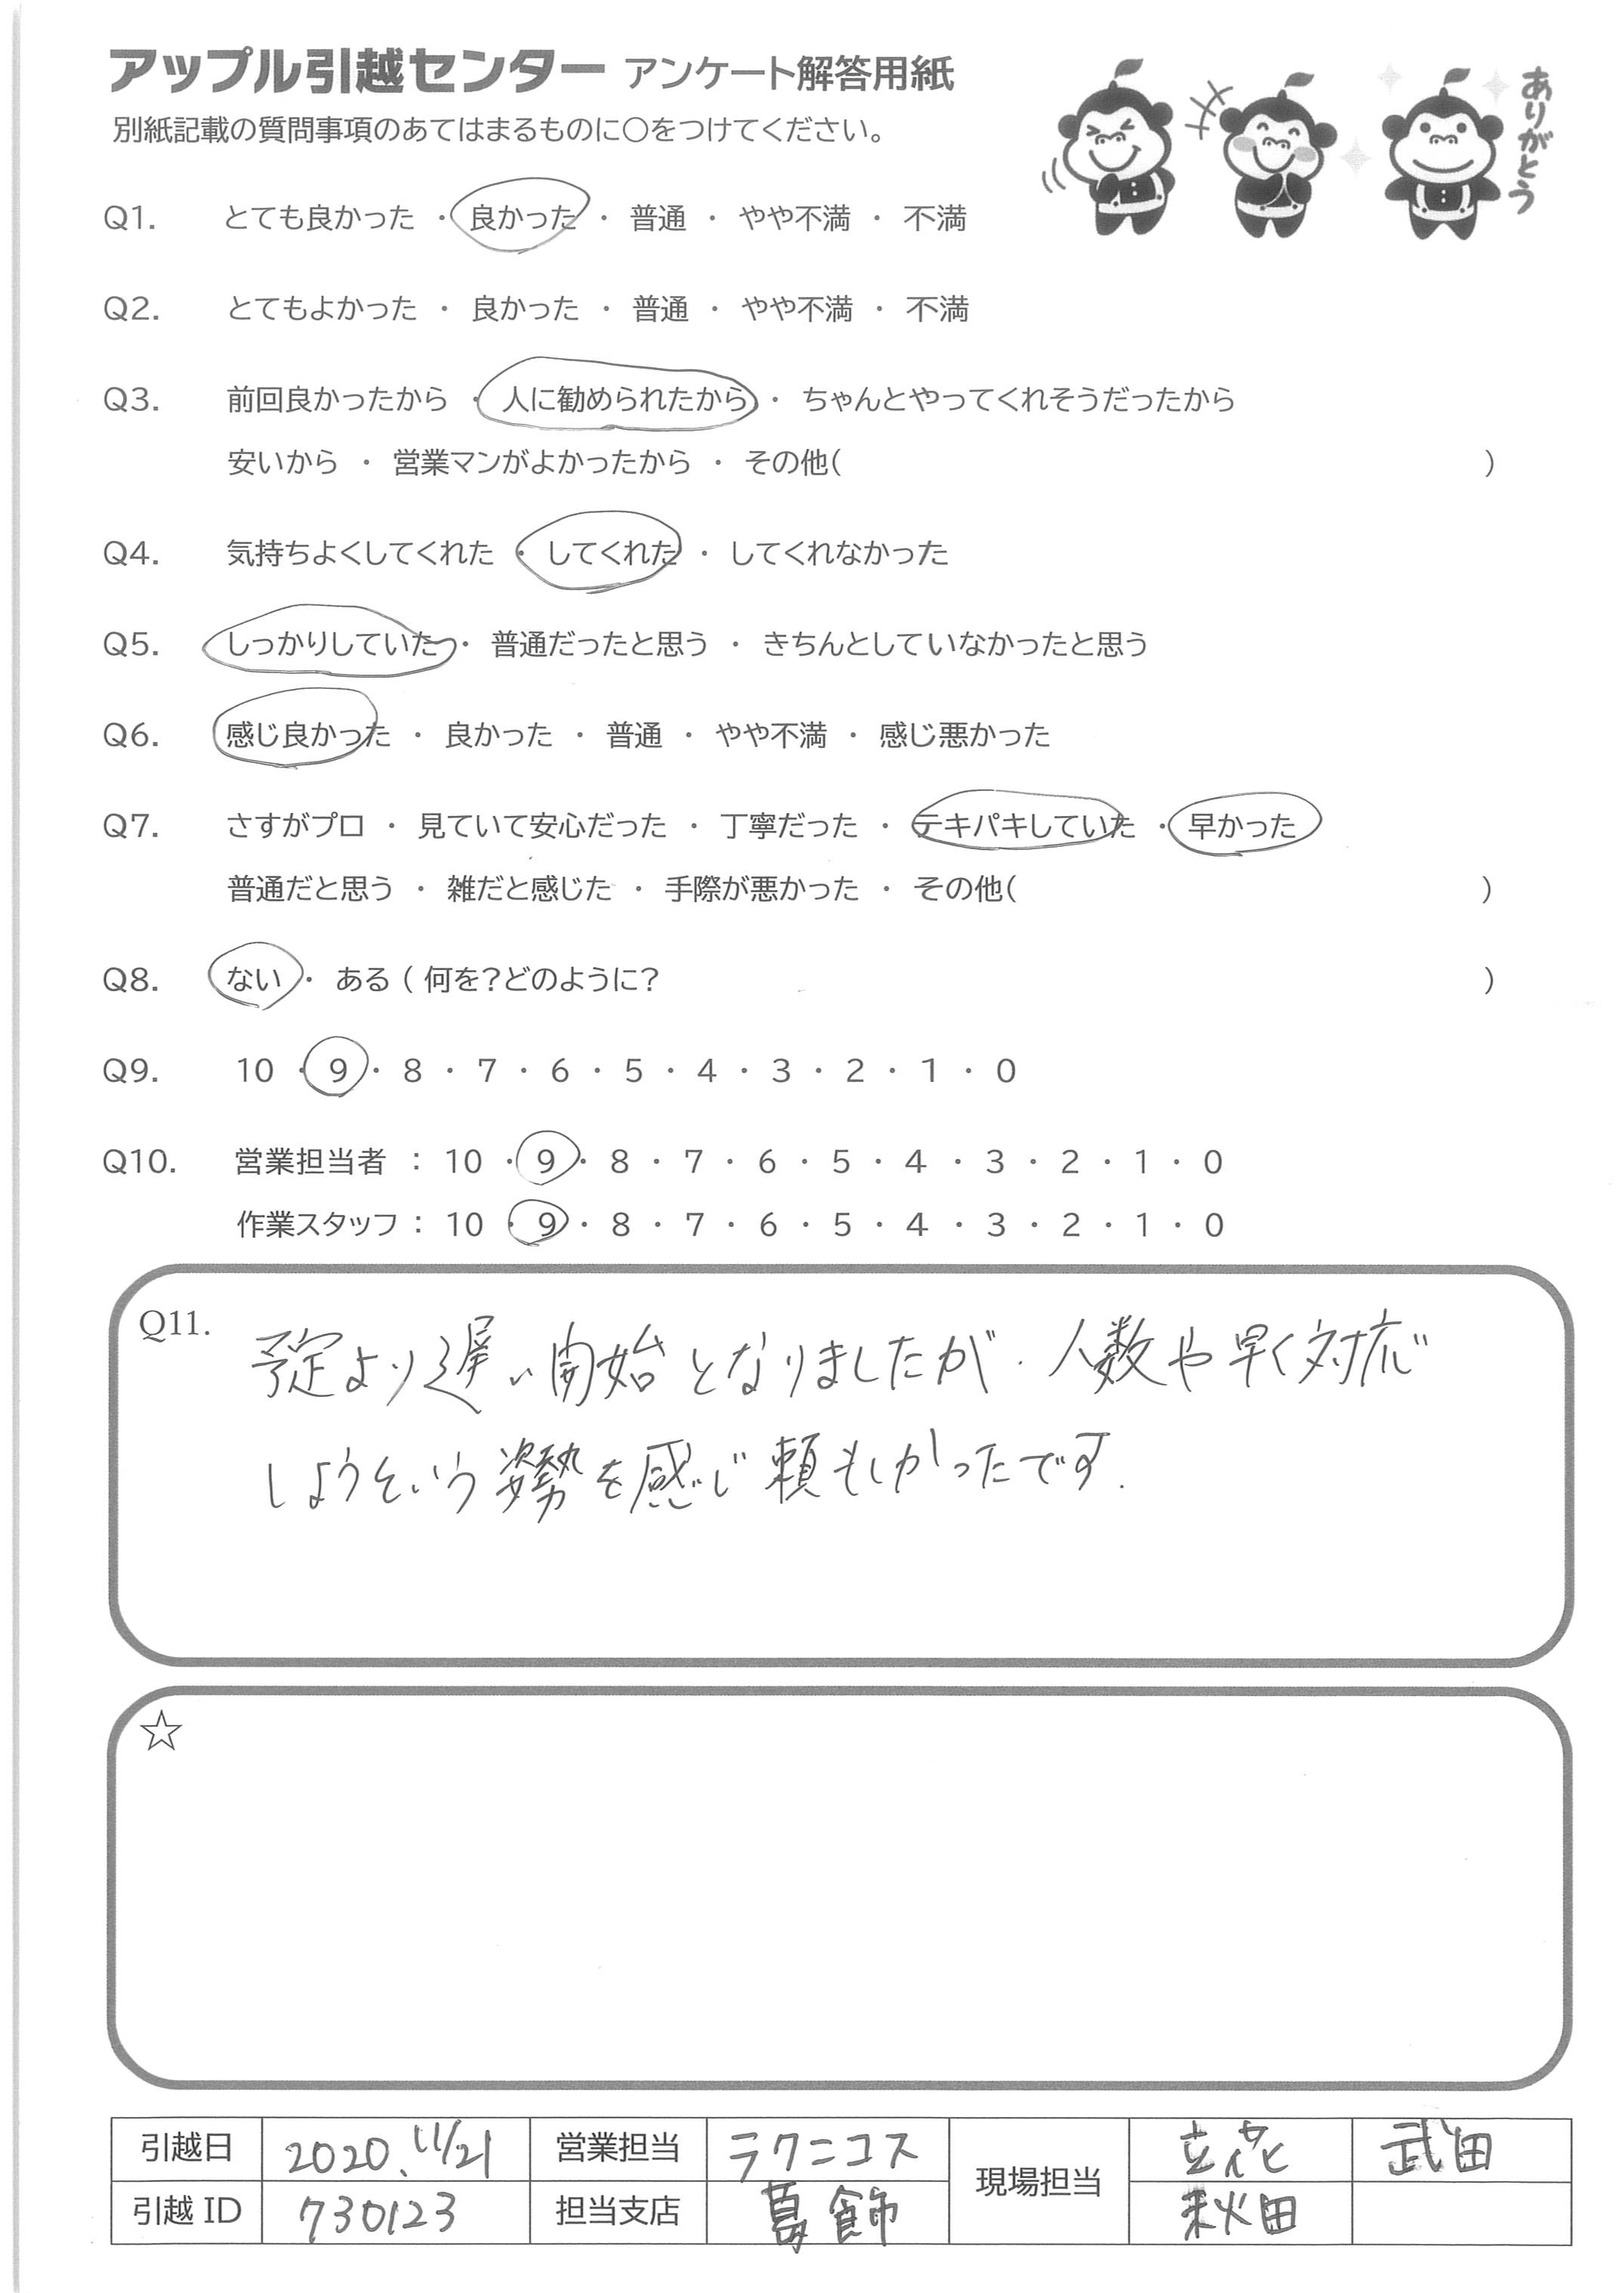 アップル引越センター アンケート解答用紙
ありがとう
別紙記載の質問事項のあてはまるものに〇をつけてください。
Q1. とても良かった ・ 良かった ・ 普通 ・ やや不満 ・ 不満
Q2. とてもよかった ・ 良かった ・ 普通 ・ やや不満 ・ 不満
Q3. 前回良かったから ・ 人に勧められたから ・ ちゃんとやってくれそうだったから
安いから ・ 営業マンがよかったから ・ その他( )
Q4. 気持ちよくしてくれた ・ してくれた ・ してくれなかった
Q5. しっかりしていた ・ 普通だったと思う ・ きちんとしていなかったと思う
Q6. 感じ良かった ・ 良かった ・ 普通 ・ やや不満 ・ 感じ悪かった
Q7. さすがプロ ・ 見ていて安心だった ・ 丁寧だった ・ テキパキしていた ・ 早かった
普通だと思う ・ 雑だと感じた ・ 手際が悪かった ・ その他( )
Q8. ない ・ ある ( 何を?どのように? )
Q9. 10 ・ 9 ・ 8 ・ 7 ・ 6 ・ 5 ・ 4 ・ 3 ・ 2 ・ 1 ・ 0
Q10. 営業担当者 : 10 ・ 9 ・ 8 ・ 7 ・ 6 ・ 5 ・ 4 ・ 3 ・ 2 ・ 1 ・ 0
作業スタッフ : 10 ・ 9 ・ 8 ・ 7 ・ 6 ・ 5 ・ 4 ・ 3 ・ 2 ・ 1 ・ 0
Q11. 予定より遅い開始となりましたが、人数や早く対応
しようという姿勢を感じ頼もしかったです.
☆
引越日 2020.11/21 営業担当 ラクニコス 現場担当 立花 武田
引越 ID 730123 担当支店 葛飾 秋田